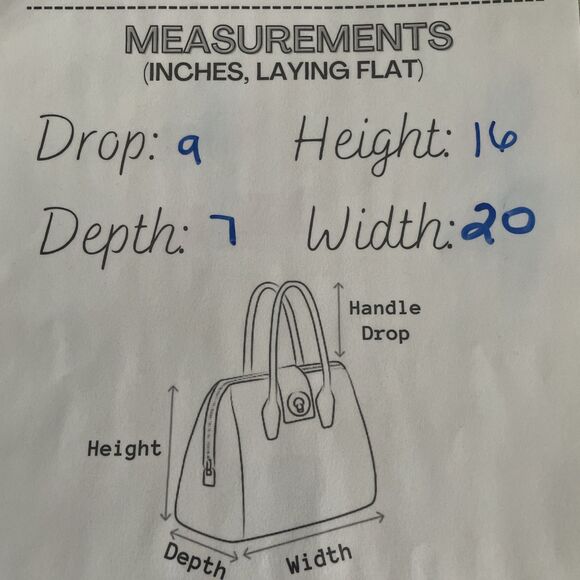 MEASUREMENTS
(INCHES, LAYING FLAT)
Drop: 9 Height: 16
Depth: 7 Width: 20
Handle
Drop
Height
Depth Width